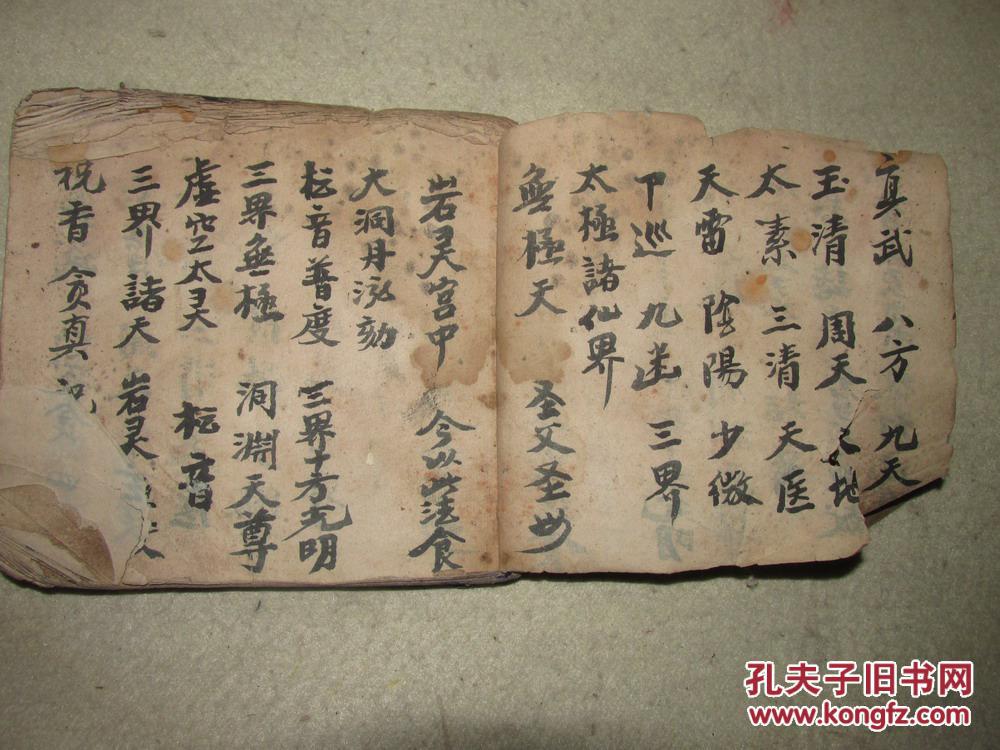 真武 八方 九天
玉清 周天 天地
太素 三清 天医
天雷 陰陽 少微
下巡 九幽 三界
太極諸仙界
無極天 圣父圣母
岩灵宫中 今以此法食
大洞丹泓刻
松音普度 三界十方光明
三界無極 洞淵天尊
虚空太灵 松音
三界諸天 岩灵
祝香 贪真 祝
孔夫子旧书网
www.kongfz.com